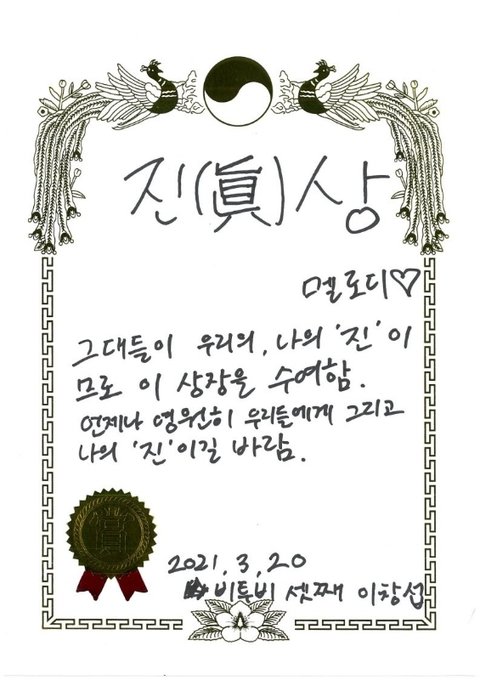 진(眞)상
멜로디♡
그대들이 우리의, 나의 '진'이
므로 이 상장을 수여함.
언제나 영원히 우리들에게 그리고
나의 '진'이길 바람.
賞
2021. 3. 20
비투비 셋째 이창섭